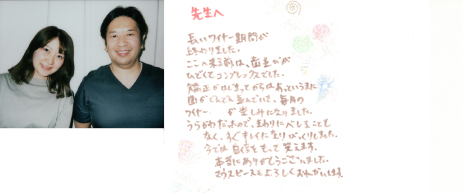 先生へ
長いワイヤー期間が
終わりました。
ここへ来る前は、歯並びが
ひどくてコンプレックスでした。
矯正がはじまってからはあっというまに
歯がどんどん並んでいき、毎月の
ワイヤー が楽しみになりました。
うらがわだったので、まわりにバレることも
なく、すぐキレイになりびっくりしました。
今では自信をもって笑えます。
本当にありがとうございました。
マウスピースもよろしくおねがいします。